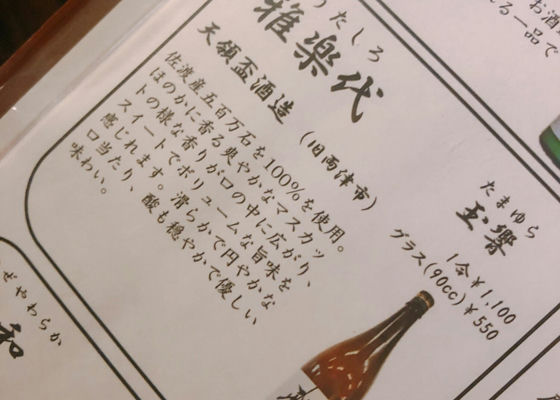 うたしろ
雅楽代
天領盃酒造
(旧両津市)
佐渡産五百万石を100%を使用。
ほのかに香る爽やかなマスカッ
トの様な香りが口の中に広がり、
スイートでボリュームな旨味を
感じれます。滑らかで円やかな
口当たり、酸も穏やかで優しい
味わい。
たまゆら
玉響
1合¥1,100
グラス(90cc)¥550
お酒
る一品で
ぜやわらか
和